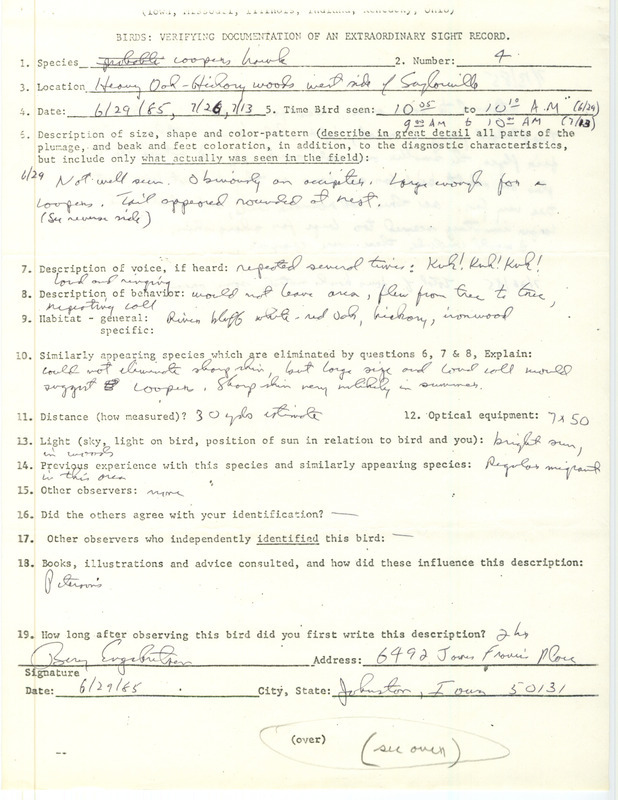 (Iowa, Missouri, Illinois, Indiana, Kentucky, Ohio)
BIRDS: VERIFYING DOCUMENTATION OF AN EXTRAORDINARY SIGHT RECORD.
1. Species probable coopers hawk 2. Number: 4
3. Location Heavy Oak-Hickory woods west side of Saylorville
4. Date: 6/29/85, 7/26, 7/13 5. Time Bird seen: 10 05 to 10 10 A.M (6/29)
9 00 AM to 10 00 AM (7/13)
6. Description of size, shape and color-pattern (describe in great detail all parts of the
plumage, and beak and feet coloration, in addition, to the diagnostic characteristics,
but include only what actually was seen in the field):
6/29 Not well seen. Obviously an accipiter. Large enough for a
Coopers. Tail appeared rounded at rest.
(See reverse side)
7. Description of voice, if heard: repeated several times: Kuk! Kuk! Kuk!
loud and ringing
8. Description of behavior: would not leave area, flew from tree to tree,
repeating call
9. Habitat - general: River bluff white-red Oak, hickory, ironwood
specific:
10. Similarly appearing species which are eliminated by questions 6, 7 & 8, Explain:
could not eliminate sharp shin, but large size and loud call would
suggest Cooper. Sharp shin very unlikely in summer.
11. Distance (how measured)? 30 yds estimate 12. Optical equipment: 7x50
13. Light (sky, light on bird, position of sun in relation to bird and you): bright sun,
in woods
14. Previous experience with this species and similarly appearing species: Regular migrant
in this area
15. Other observers: none
16. Did the others agree with your identification? —
17. Other observers who independently identified this bird: —
18. Books, illustrations and advice consulted, and how did these influence this description:
Peterson's
19. How long after observing this bird did you first write this description? 2 hrs
Bery Engebretsen Address: 6492 Jones Francis Place
Signature
Date: 6/29/85 City, State: Johnston, Iowa 50131
(over) (see over)